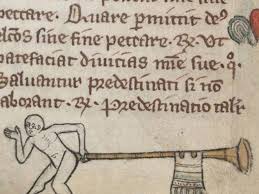 peccare. Quare permittit de⁹
electos sine fine peccare. R. Ut
patefaciat divicias mie sue. qͦ.
Salvantur predestinati si non
laborant. R. Predestinatio tali